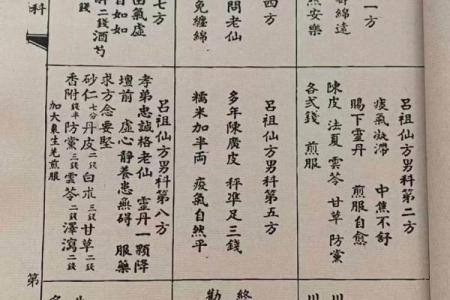 一方
綿遠
安樂
四方
問老仙
免纏綿
七方
由氣虛
自如如
二錢酒芍
科
呂祖仙方男科第二方
痰氣凝滯 中焦不舒
賜下靈丹 煎服自愈
陳皮 法夏 雲苓 甘草 防黨
各弍錢 煎服
呂祖仙方男科第五方
多年陳廣皮 秤準足三錢
糯米加半両 痰氣自然平
呂祖仙方男科第八方
孝弟忠誠格老仙 靈丹一顆降
壇前 虛心靜養患無礙 服藥
求方念要堅
砂仁七分 丹皮二錢 白朮三錢 甘草二錢
香附錢半 防黨三錢 雲苓三錢 澤瀉二錢
加大棗生羌煎服
第
川
川
終
勸